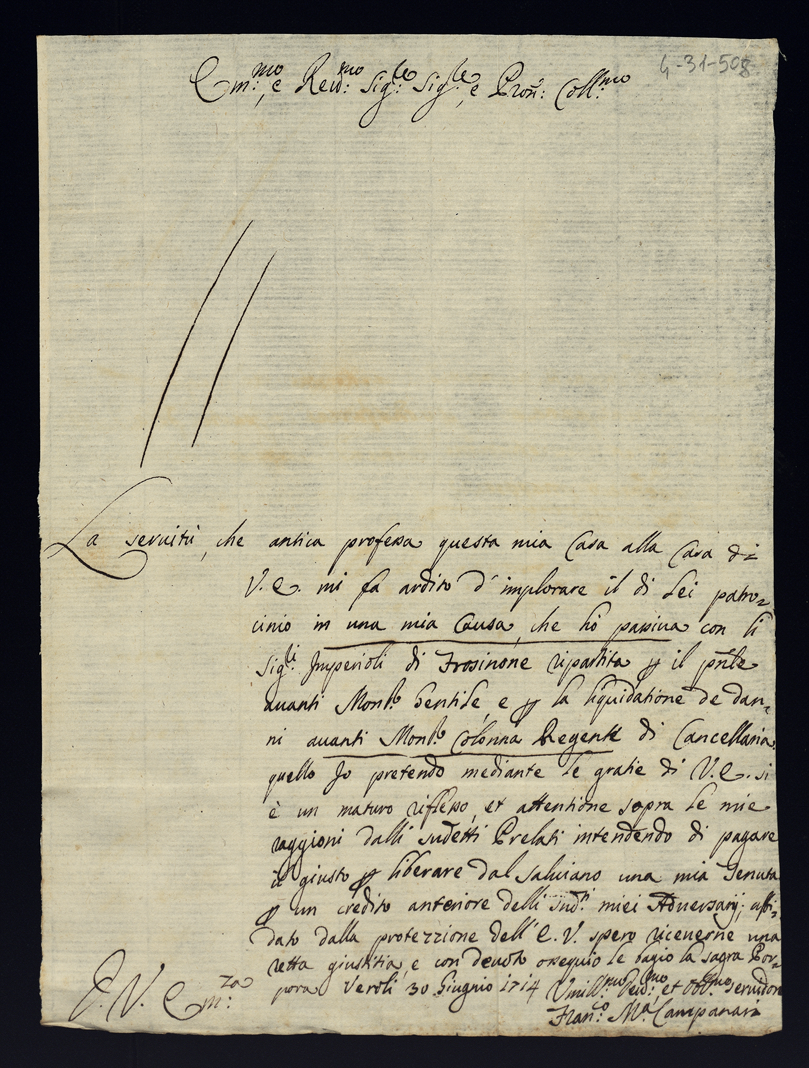 4-31-508
Em.mo, e Reud.mo Sig.re Sig.re, e Pron: Coll.mo
La seruitù, che antica professa questa mia Casa alla Casa di
V. E. mi fa ardito d'implorare il di Lei patro=
cinio in una mia Causa, che hò passiua con li
Sig.li Imperioli di Frosinone ripartita p il pnte
auanti Mons.r Gentile, e p la liquidatione de dan=
ni auanti Mons.r Colonna Regente di Cancellaria,
quello Io pretendo mediante le gratie di V. E. si
è un maturo riflesso, et attentione sopra le mie
raggioni dalli sudetti Prelati intendendo di pagare
il giusto p liberare dal saluiano una mia Tenuta
p un credito anteriore delli sud.ti miei Aduersarij; affi=
dato dalla protezzione dell'E. V. spero riceuerne una
retta giustitia, e con deuoto ossequio le bagio la sagra Por=
pora Veroli 30 Giugno 1714
D. V. Em.za
Vmill.mo Deu.mo, et Obl.mo seruidore
Fran.co M.a Campanari